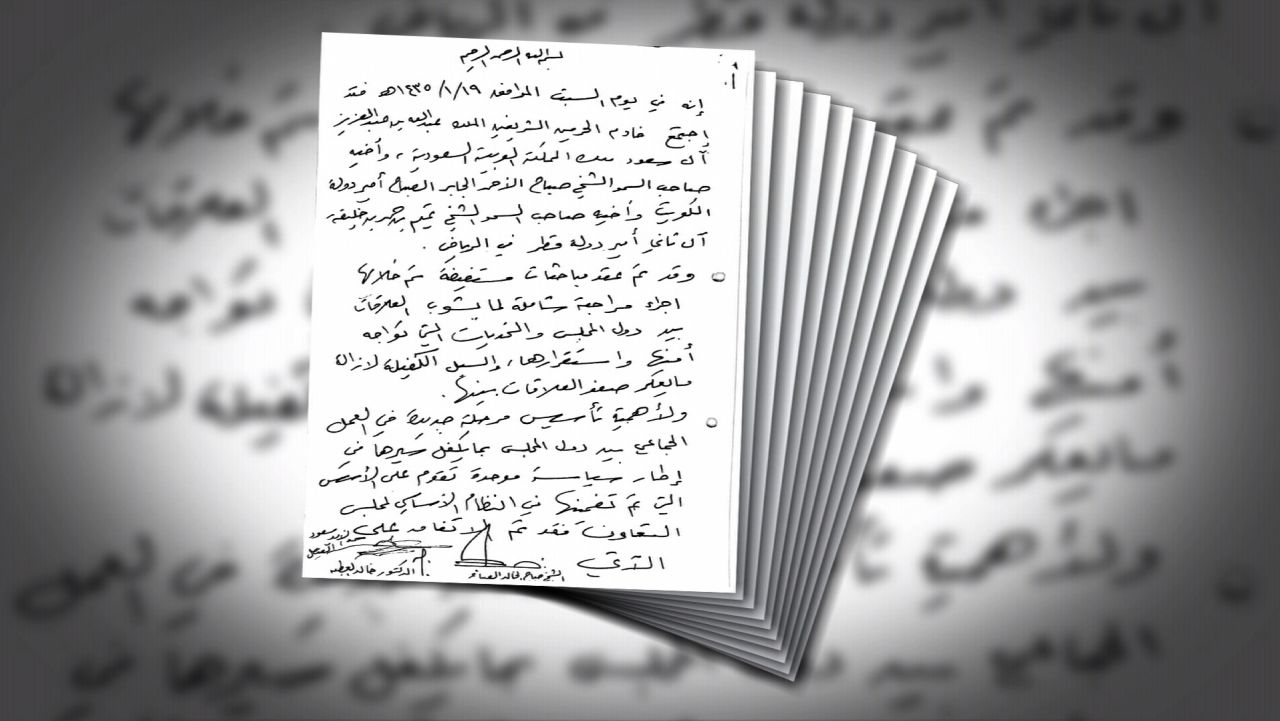 بسم الله الرحمن الرحيم
إنه في يوم السبت الموافق ١٤٣٥/١/١٩هـ فقد
اجتمع خادم الحرمين الشريفين الملك عبدالله بن عبدالعزيز
آل سعود ملك المملكة العربية السعودية، وأخيه
صاحب السمو الشيخ صباح الأحمد الجابر الصباح أمير دولة
الكويت وأخيه صاحب السمو الشيخ تميم بن حمد بن خليفه
آل ثاني أمير دولة قطر في الرياض.
وقد تم عقد مباحثات مستفيضة تم خلالها
اجراء مراجعة شاملة لما يشوب العلاقات
بين دول المجلس والتحديات التي تواجه
أمنها واستقرارها، والسبل الكفيلة لازالة
مايعكر صفو العلاقات بينها.
ولأهمية تأسيس مرحلة جديدة في العمل
الجماعي بين دول المجلس بما يكفل سيرها في
إطار سياسة موحدة تقوم على الأسس
التي تم تضمينها في النظام الأساسي لمجلس
التعاون فقد تم الاتفاق على
الآتي
سعود الفيصل
الشيخ صباح خالد الصباح
الدكتور خالد العطيه